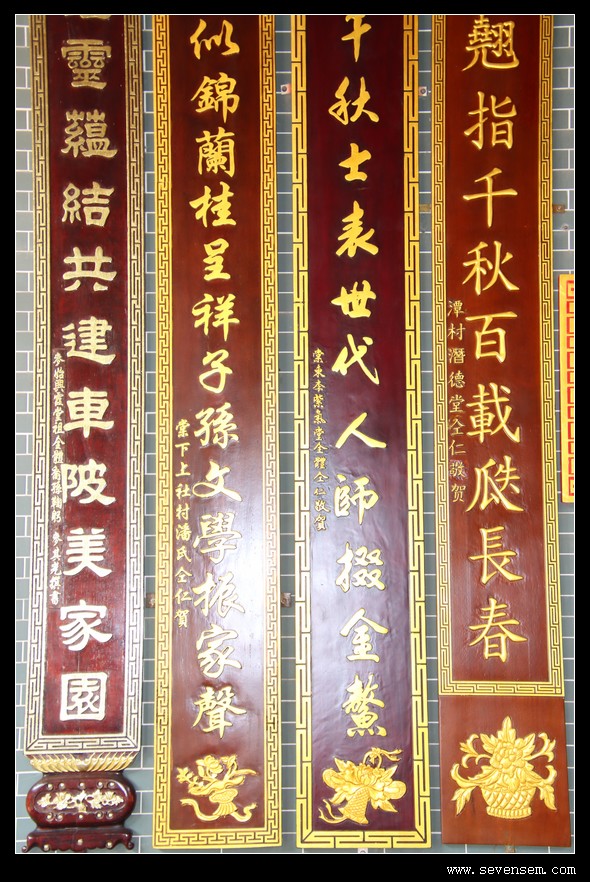 翹指千秋百載瓞長春
潭村潛德堂仝仁敬贺
千秋士表世代人師掇金鰲
棠東李紫氣堂全體仝仁敬賀
似錦蘭桂呈祥子孫文學振家聲
棠下上社村潘氏仝仁賀
靈蘊結共建車陂美家園
堂祖全體裔孫鞠躬 撰書
www.sevensem.com